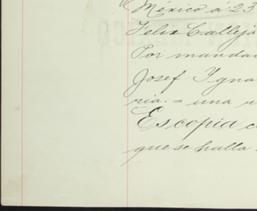 México á 23
Felix Calleja
Por manda
Josef Ygna
ria. - una
Es copia
que se halla